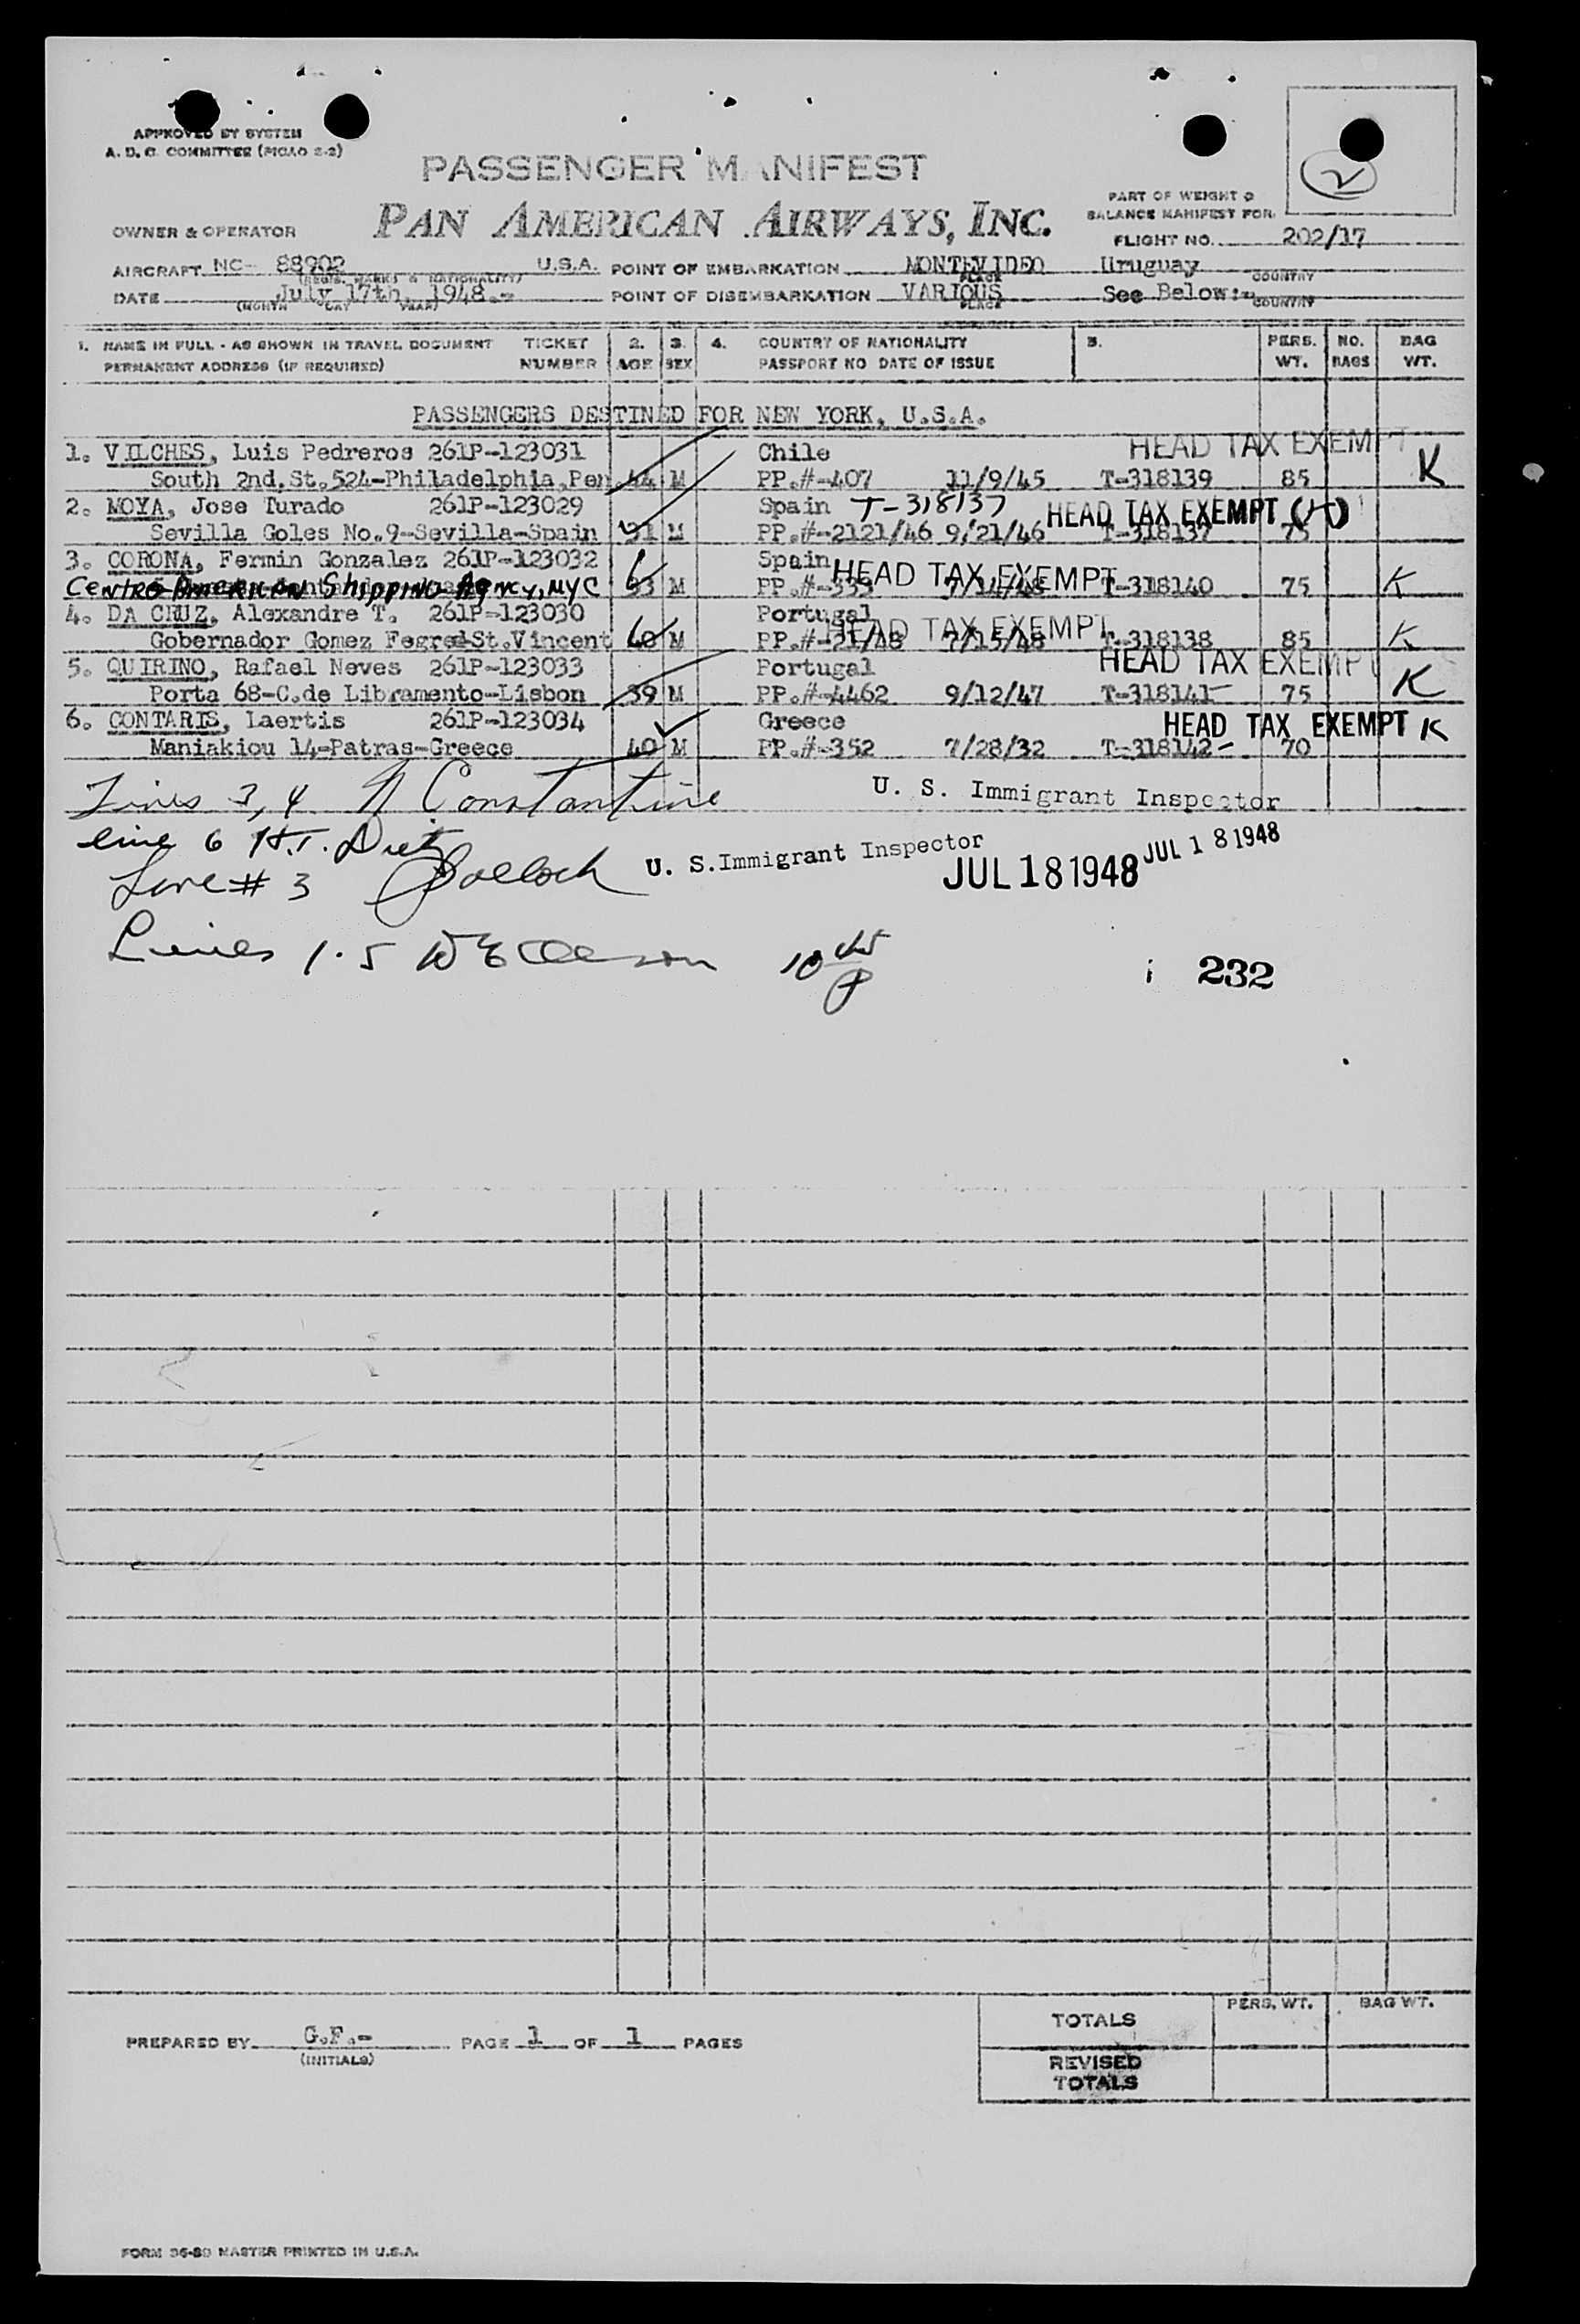 APPROVED BY SYSTEM
A. D. C. COMMITTEE (PICAO 2-2)
2
PASSENGER MANIFEST
PART OF WEIGHT &
BALANCE MANIFEST FOR
OWNER & OPERATOR PAN AMERICAN AIRWAYS, INC.
FLIGHT NO. 202/17
AIRCRAFT NC- 88902 U.S.A. POINT OF EMBARKATION MONTEVIDEO Uruguay
(REGIS. MARKS & NATIONALITY) PLACE COUNTRY
DATE July 17th, 1948.- POINT OF DISEMBARKATION VARIOUS See Below:-
(MONTH DAY YEAR) PLACE COUNTRY
1. NAME IN FULL - AS SHOWN IN TRAVEL DOCUMENT TICKET 2. 3. 4. COUNTRY OF NATIONALITY 5. PERS. NO. BAG
PERMANENT ADDRESS (IF REQUIRED) NUMBER AGE SEX PASSPORT NO DATE OF ISSUE WT. BAGS WT.
PASSENGERS DESTINED FOR NEW YORK, U.S.A.
1. VILCHES, Luis Pedreros 261P-123031 Chile HEAD TAX EXEMPT
South 2nd.St.524-Philadelphia.Pen. 44 M PP.#-407 11/9/45 T-318139 85 K
2. MOYA, Jose Turado 261P-123029 Spain T-318137 HEAD TAX EXEMPT
Sevilla Goles No.9-Sevilla-Spain 31 M PP.#-2121/46 9/21/46 T-318137 75
3. CORONA, Fermin Gonzalez 261P-123032 Spain HEAD TAX EXEMPT
Centro American Shipping Agency, NYC 33 M PP.#-333 7/14/48 T-318140 75 K
4. DA CRUZ, Alexandre T. 261P-123030 Portugal HEAD TAX EXEMPT
Gobernador Gomez St.Vincent 40 M PP.#-21/48 7/15/48 T-318138 85 K
5. QUIRINO, Rafael Neves 261P-123033 Portugal HEAD TAX EXEMPT
Porta 68-C.de Libramento-Lisbon 39 M PP.#-4462 9/12/47 T-318141- 75 K
6. CONTARIS, Laertis 261P-123034 Greece HEAD TAX EXEMPT K
Maniakiou 14-Patras-Greece 40 M PP.#-352 7/28/32 T-318142- 70
Lines 3, 4 N Constantine U. S. Immigrant Inspector
line 6 H.T.
Line # 3 Pollock U. S. Immigrant Inspector JUL 18 1948 JUL 18 1948
Lines 1·5 10 45 P
232
TOTALS PERS. WT. BAG WT.
REVISED
TOTALS
PREPARED BY G.F.- PAGE 1 OF 1 PAGES
(INITIALS)
FORM 36-80 MASTER PRINTED IN U.S.A.